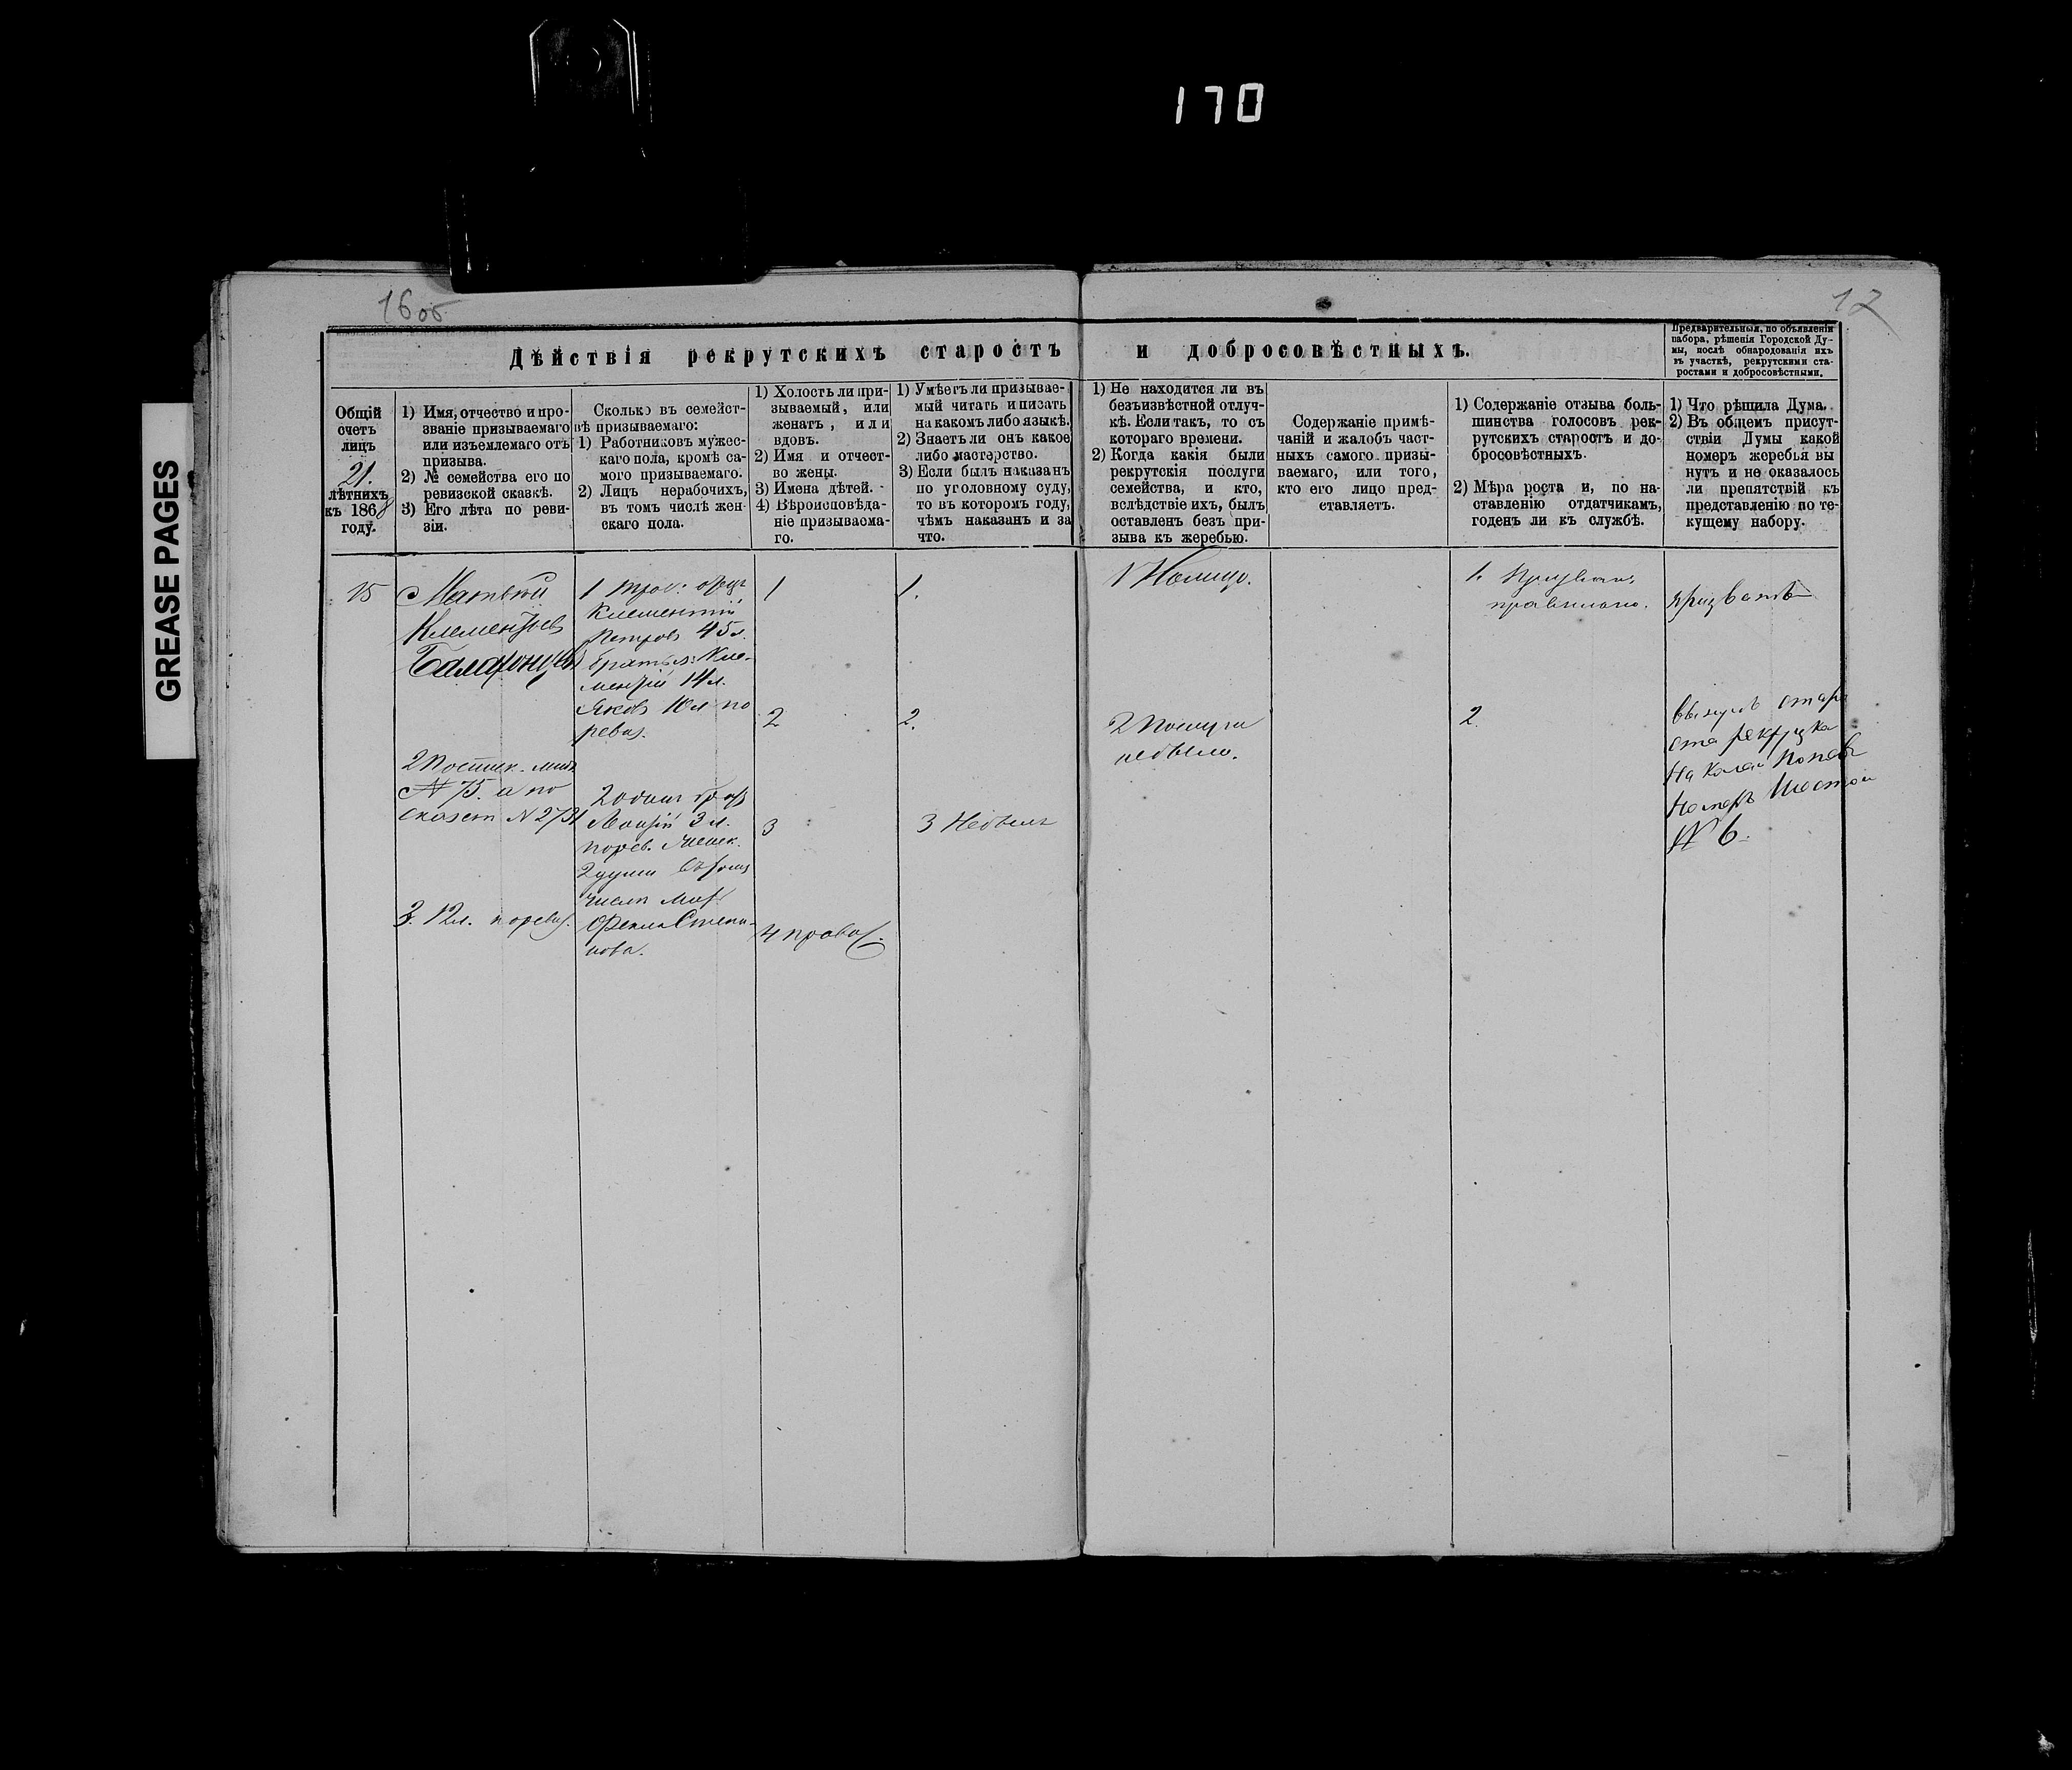 170
GREASE PAGES
16 об
17
Дѣйствія рекрутскихъ старостъ и добросовѣстныхъ.
Предварительныя, по объявленіи
набора, рѣшенія Городской Ду-
мы, послѣ обнародованія ихъ
въ участкѣ, рекрутскими ста-
ростами и добросовѣстными.
Общій
счетъ
лицъ
21.
лѣтнихъ
къ 1868
году.
1) Имя, отчество и про-
званіе призываемаго
или изъемлемаго отъ
призыва.
2) № семейства его по
ревизской сказкѣ.
3) Его лѣта по реви-
зіи.
Сколько въ семейст-
вѣ призываемаго:
1) Работниковъ мужес-
каго пола, кромѣ са-
мого призываемаго.
2) Лицъ нерабочихъ,
въ томъ числѣ жен-
скаго пола.
1) Холостъ ли при-
зываемый, или
женатъ, или
вдовъ.
2) Имя и отчест-
во жены.
3) Имена дѣтей.
4) Вѣроисповѣда-
ніе призываема-
го.
1) Умѣетъ ли призывае-
мый читать и писать
на какомъ либо языкѣ.
2) Знаетъ ли онъ какое
либо мастерство.
3) Если былъ наказанъ
по уголовному суду,
то въ которомъ году,
чѣмъ наказанъ и за
что.
1) Не находится ли въ
безъизвѣстной отлуч-
кѣ. Если такъ, то съ
котораго времени.
2) Когда какія были
рекрутскія послуги
семейства, и кто,
вслѣдствіе ихъ, былъ
оставленъ безъ при-
зыва къ жеребью.
Содержаніе примѣ-
чаній и жалобъ част-
ныхъ самого призы-
ваемаго, или того,
кто его лицо пред-
ставляетъ.
1) Содержаніе отзыва боль-
шинства голосовъ рек-
рутскихъ старостъ и до-
бросовѣстныхъ.
2) Мѣра роста и, по на-
ставленію отдатчикамъ,
годенъ ли къ службѣ.
1) Что рѣшила Дума.
2) Въ общемъ присут-
ствіи Думы какой
номеръ жеребья вы
нутъ и не оказалось
ли препятствій къ
представленію по те-
кущему набору.
15
Матвѣй
Клементьев
2
№ 75. и по
3. 12 л. по ревиз.
1
Клементій
Петровъ 45 л.
братья: Кле-
ментій 14 л.
Яковъ 10 л по
ревиз.
2
3 л.
2 души
числѣ
Фекла Степа-
нова.
1
2
3
4 правос.
1.
2.
3 Небылъ
1 Налицо.
2 Послуги
небыло.
1.
правильно.
2.
призвать
вынулъ старо
ста рекрутска
Николай Поповъ
номеръ шестой
№ 6